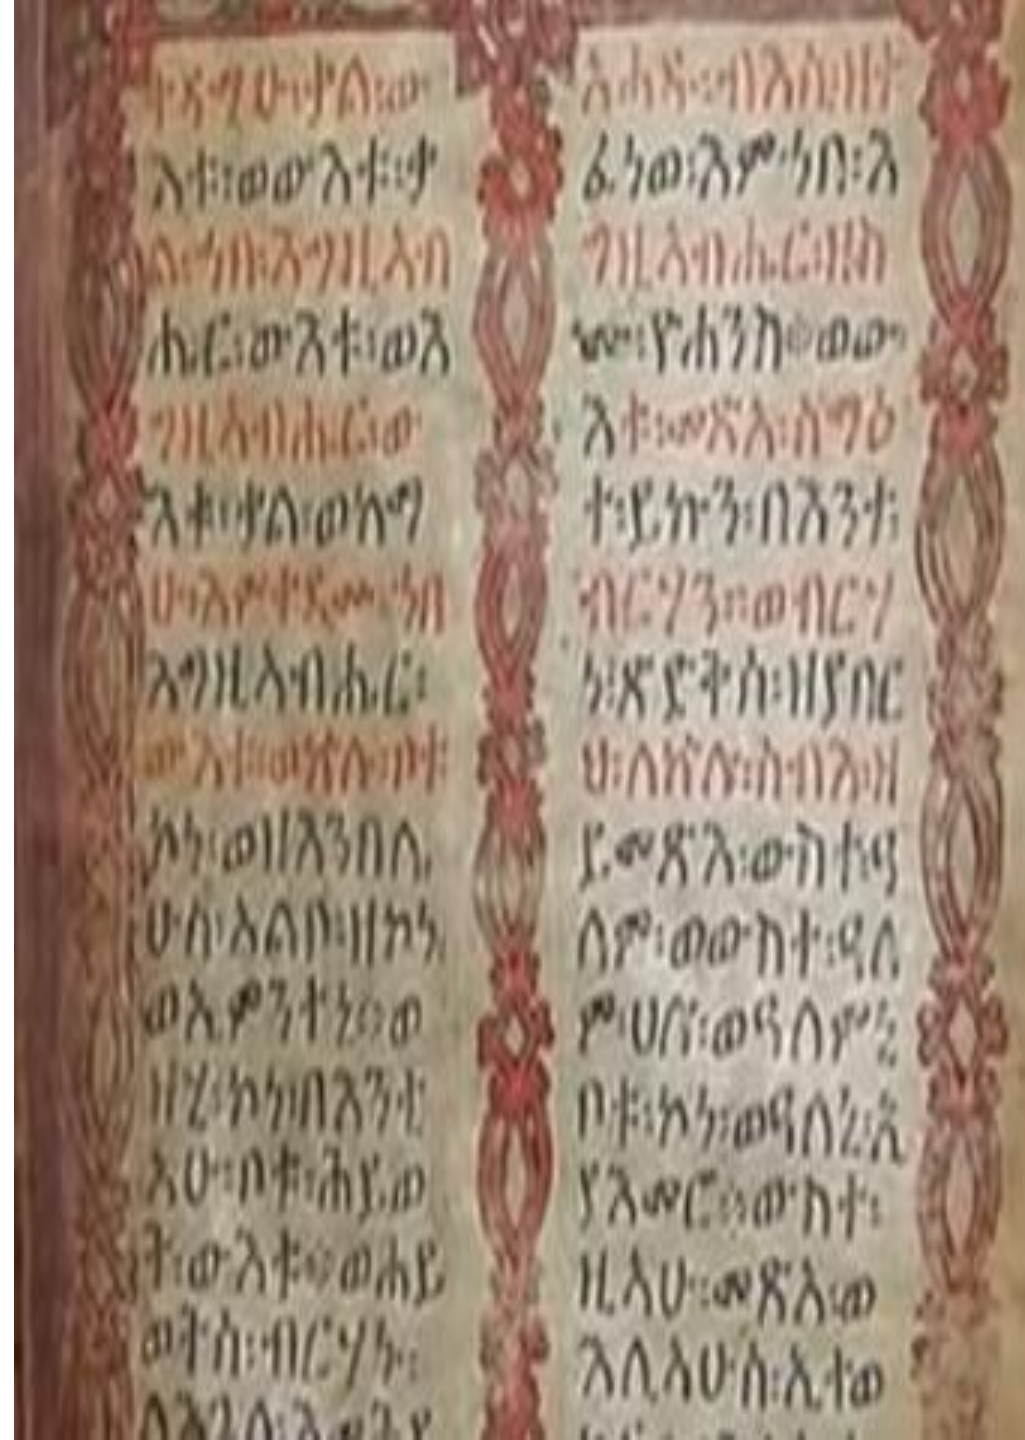 ቀዳሚሁ፡ቃል፡ው
እቱ፡ወውእቱ፡ቃ
ል፡ኀበ፡እግዚአብ
ሔር፡ውእቱ፡ወእ
ግዚአብሔር፡ው
እቱ፡ቃል፡ወከማ
ሁ፡እምቀዳሙ፡ኀበ
እግዚአብሔር፡
ውእቱ፡ወኵሉ፡ቦቱ፡
ኮነ፡ወዘእንበሌ
ሁሰ፡አልቦ፡ዘኮነ፡
ወኢምንትኒ፡፡ወ
ዘሂ፡ኮነ፡በእንቲ
አሁ፡ቦቱ፡ሕይወ
ት፡ውእቱ፡፡ወሕይ
ወትሰ፡ብርሃኑ፡
አሐዱ፡ብእሲ፡ዘተ
ፈነወ፡እምኀበ፡እ
ግዚአብሔር፡ዘስ
ሙ፡ዮሐንስ፡፡ወው
እቱ፡መጽአ፡ለማዕ
ተ፡ይኩን፡በእንተ፡
ብርሃን፡፡ወብርሃ
ነ፡ጽድቅሰ፡ዘያበር
ህ፡ለኵሉ፡ሰብእ፡ዘ
ይመጽእ፡ውስተ፡ዓ
ለም፡ወውስተ፡ዓለ
ም፡ሀሎ፡ወዓለምኒ
ቦቱ፡ኮነ፡ወዓለሰኒ፡ኢ
ያእመሮ፡፡ውስተ፡
ዚአሁ፡መጽአ፡ወ
እሊአሁሰ፡ኢተወ